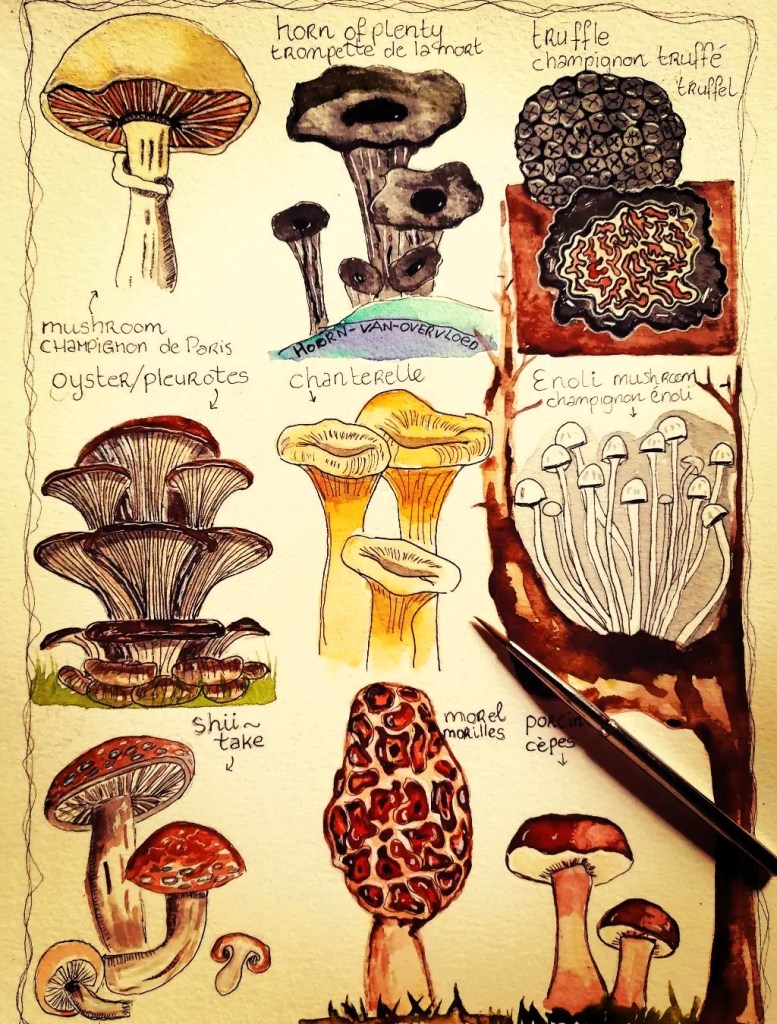 horn of plenty
trompette de la mort
truffle
champignon truffé
truffel
mushroom
CHAMPIGNON de PARIS
HOORN-VAN-OVERVLOED
oyster/pleurotes
chanterelle
Enoli mushroom
champignon énoli
shii~
take
morel
morilles
porcin
cèpes